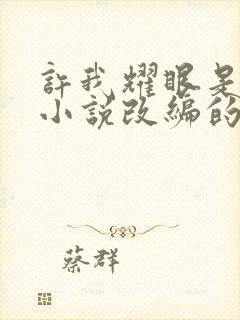 許我耀眼是
小說改編的
蔡群